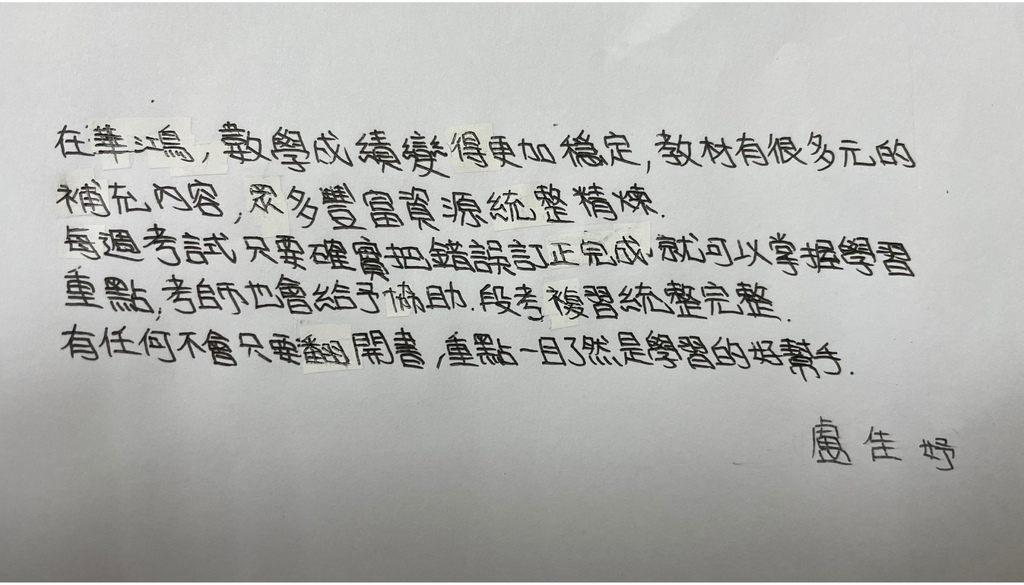 在華鴻,數學成績變得更加穩定,教材有很多元的
補充內容,眾多豐富資源統整精煉.
每週考試只要確實把錯誤訂正完成,就可以掌握學習
重點,考師也會給予協助.段考複習統整完整.
有任何不會只要翻開書,重點一目了然是學習的好幫手.
盧佳妤